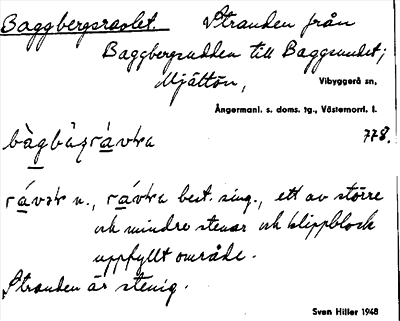 Baggbergsraslet. Stranden från
Baggbergsudden till Baggsundet;
Mjältön, Vibyggerå sn.
Ångermanl. s. doms. tg., Västernorrl. l.
778.
ett av större
och mindre stenar och klippblock
uppfyllt område.
Stranden är stenig.
Sven Hiller 1948